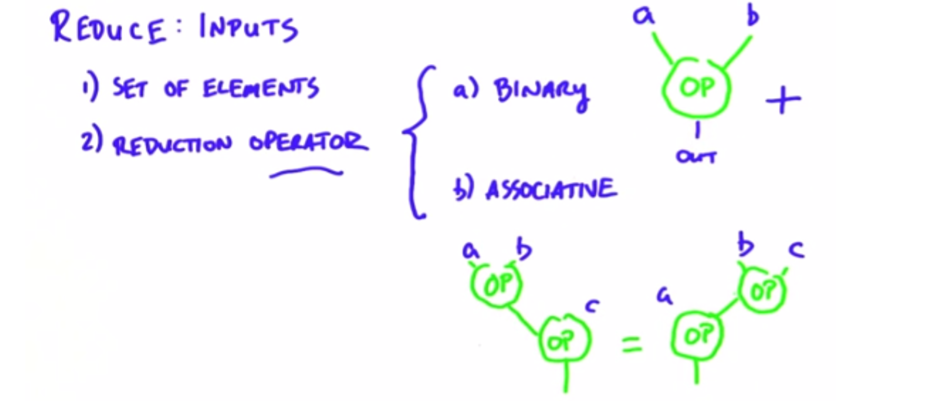 REDUCE: INPUTS
1) SET OF ELEMENTS
2) REDUCTION OPERATOR
a) BINARY
a b
OP +
OUT
b) ASSOCIATIVE
a b
OP
c
OP
=
b c
OP
a
OP